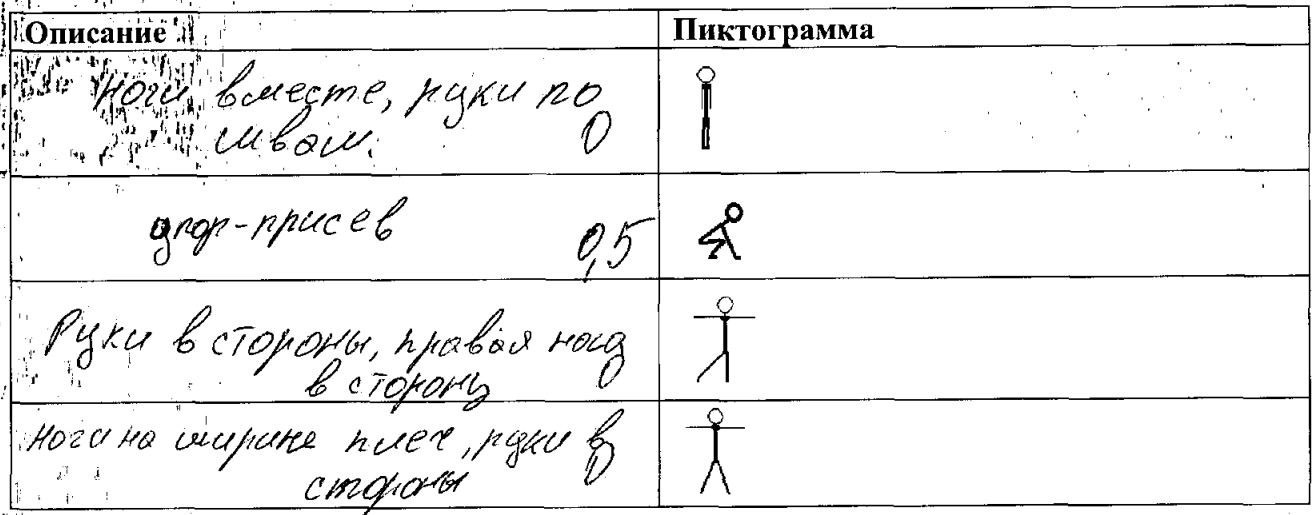 Описание Пиктограмма
Ноги вместе, руки по
швам. 0
упор-присев 0,5
Руки в стороны, правая нога
в сторону 0
Ноги на ширине плеч, руки в
стороны 0